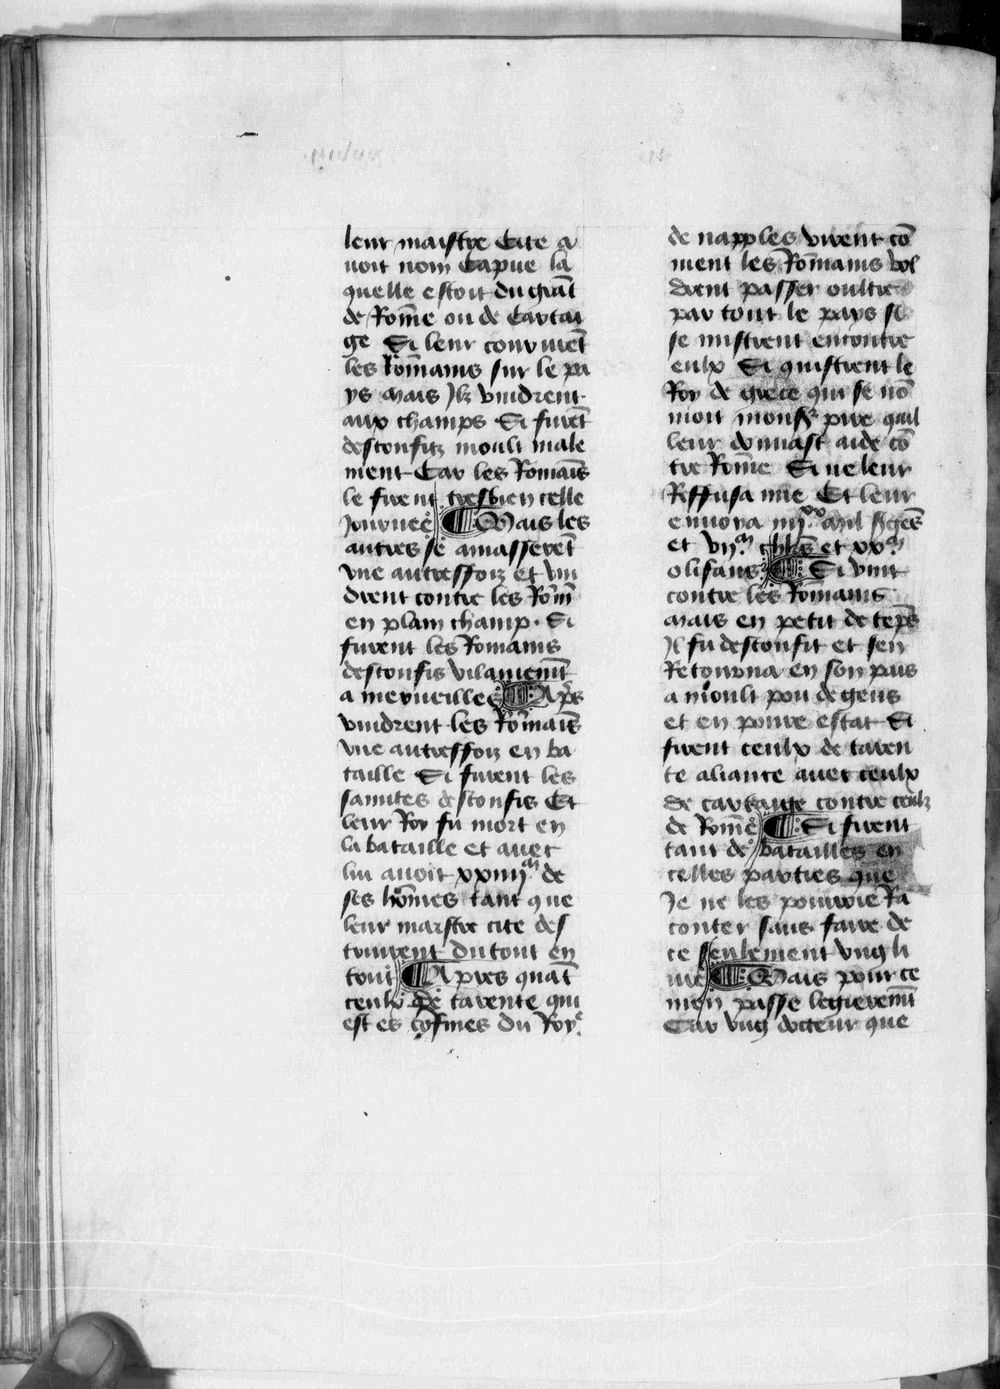 leur maistre Cite a
uoit nom Capue la
quelle estoit du grāt
de Rōme ou de Cartai
ge Si leur couruirēt
les Rōmains sur le pa
ys Mais Jlz vindrent
aux champs Si furēt
desconfitz moult male
ment Car les Romaīs
le firent tresbien celle
Journee ¶ Mais les
autres se amasserēt
vne autreffoiz et vin
drent contre les Rōm̄
en plain champ. Si
furent les Romains
desconfis vilainemēt
a merueilles ¶ Ap̄s
vindrent les Rōmaīs
vne autreffoiz en ba
taille Si furent les
samites desconfis Et
leur Roy fu mort en
la bataille et auec
lui auoit xxiiij.m de
ses hōmes tant que
leur maistre cite des
truirent du tout en
tout ¶ Apres quāt
ceulx de tarente qui
est es cōfines du Roy.e
de napples virent cō
ment les Rōmains vol
drent passer oultre
par tout le pays Si
se mistrent encontre
eulx Si quistrent le
Roy de grece qui se nō
moit monsr̄ pire quil
leur donnast aide cō
tre Rōme Si ne leur
Reffusa mie Et leur
enuoya iiij.xx mil
et vij.m chl̄rs et xx.m
olifans ¶ Si vint
contre les Rōmains
Mais en petit de tēps
Jl fu desconfit et sen
Retourna en son pais
a moult pou de gens
et en poure estat Si
firent ceulx de taren
te aliance auec ceulx
de cartaige contre ceulz
de Rōme ¶ Si firent
tant de batailles en
celles parties que
Je ne les pourroie Ra
conter sans faire de
ce seulement vng li
ure ¶ Mais pour ce
men passe legieremēt
Car vng docteur que